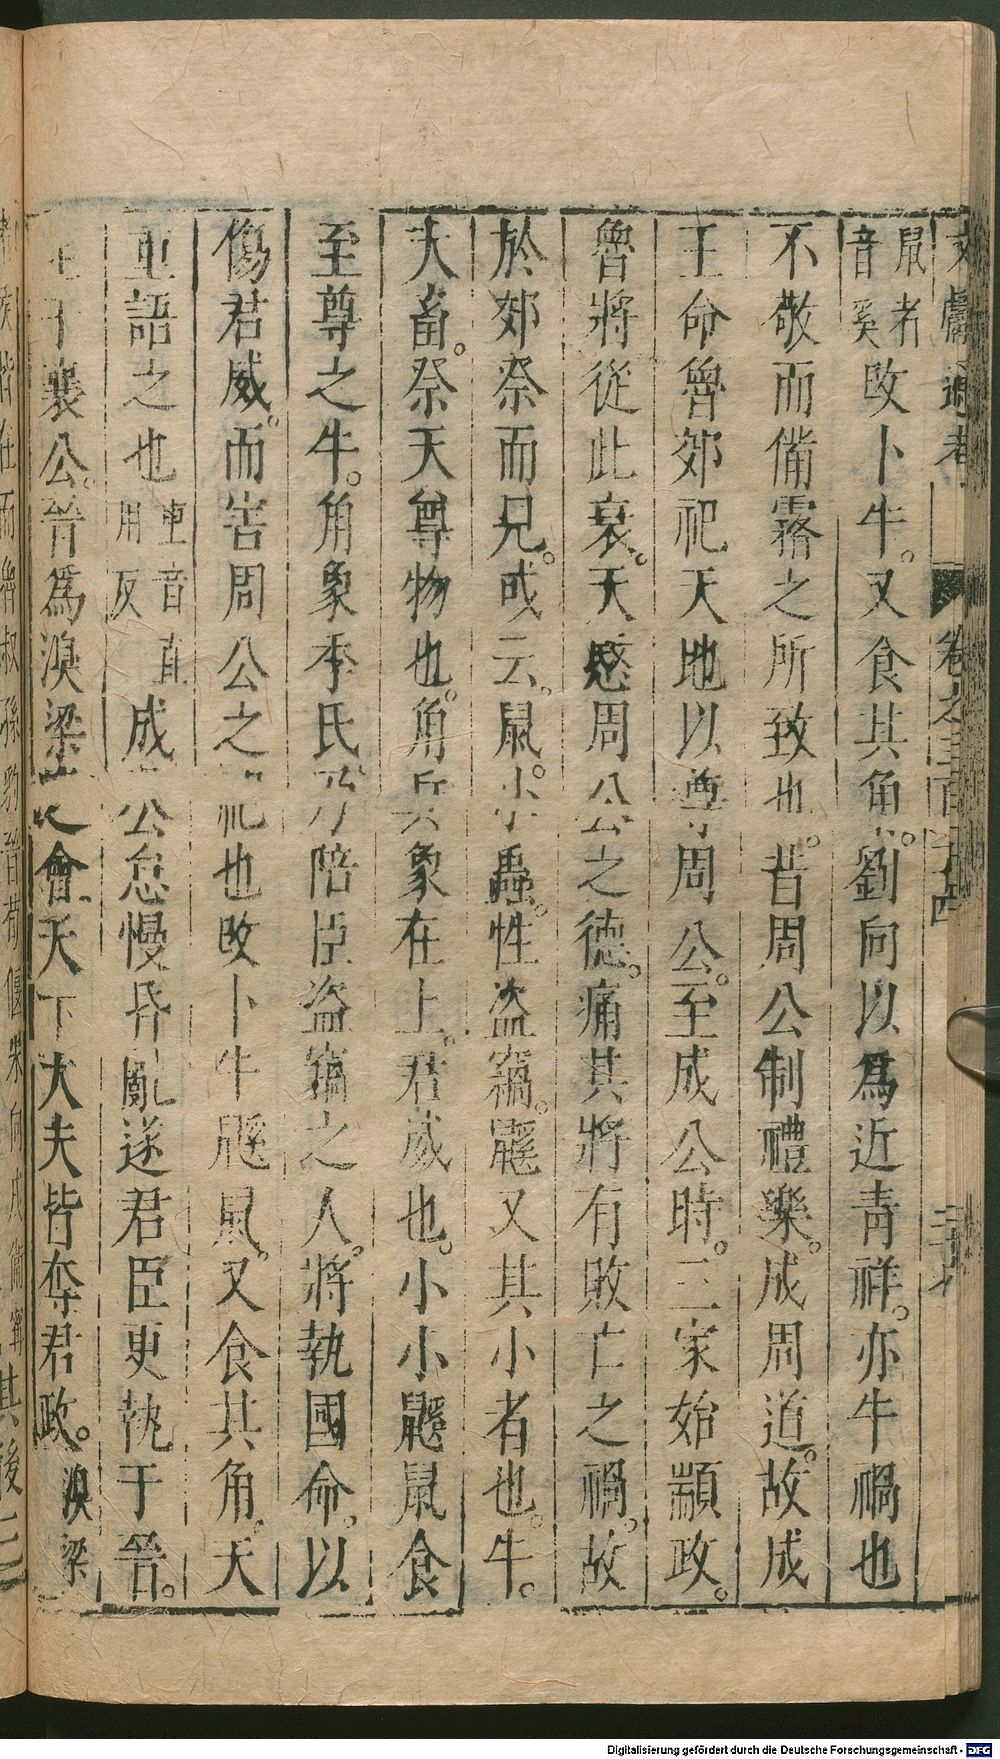 文獻通考 卷之三百十四 三十七
鼠者音奚改卜牛。又食其角。劉向以爲近青祥。亦牛禍也
不敬而備霿之所致也。昔周公制禮樂。成周道。故成
王命魯郊祀天地以尊周公。至成公時。三家始顓政。
魯將從此衰。天愍周公之德。痛其將有敗亡之禍。故
於郊祭而見戒云。鼠。小蟲。性盜竊。鼷又其小者也。牛。
大畜。祭天尊物也。角兵象在上。君威也。小小鼷鼠食
至尊之牛。角象季氏乃陪臣盜竊之人。將執國命。以
傷君威。而害周公之祀也改卜牛鼷鼠。又食其角。天
重語之也重音直用反成公怠慢昬亂遂君臣更執于晉。
至于襄公。晉爲溴梁之會天下大夫皆奪君政。溴梁
侯皆在而魯叔孫豹晉荀偃宋向戌衛甯其後三
Digitalisierung gefördert durch die Deutsche Forschungsgemeinschaft - DFG